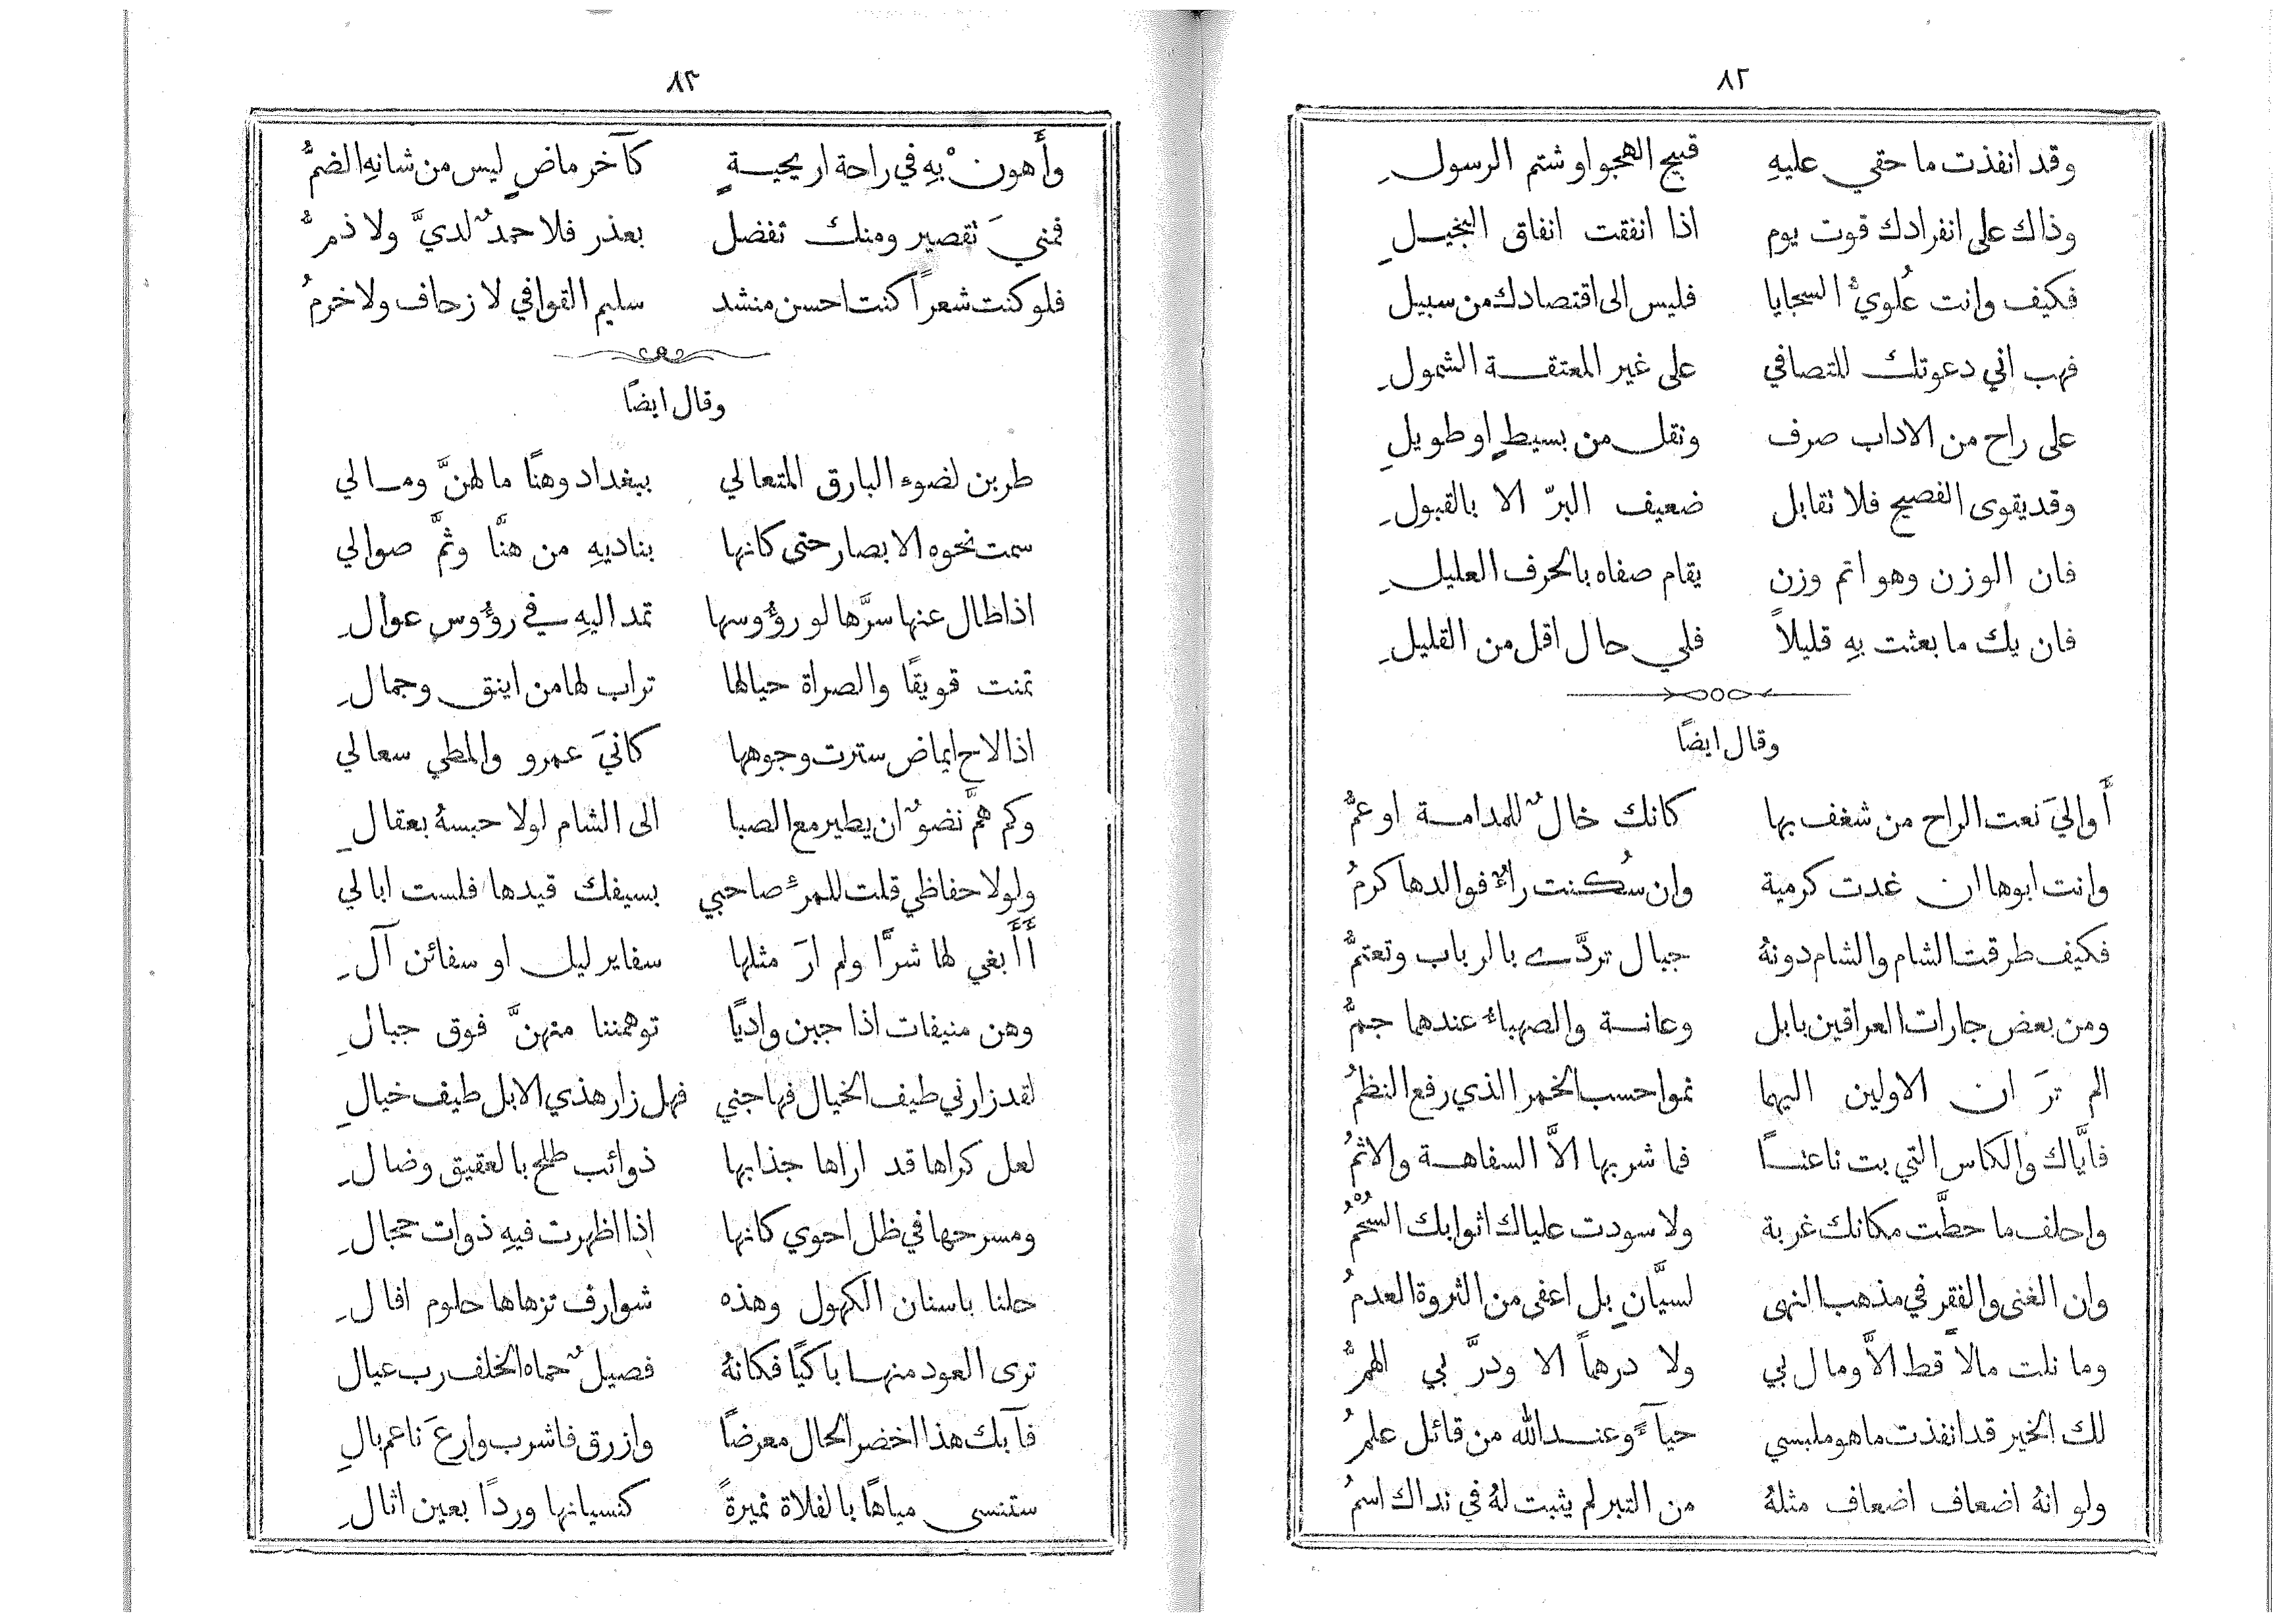 ٨٢
وقد انفذت ما حقي عليهِ قبيح الهجو او شتم الرسولِ
وذاك على انفرادك قوت يوم اذا انفقت انفاق البخيلِ
فكيف وانت عُلويُّ السجايا فليس الى اقتصادك من سبيل
فهب اني دعوتك للتصافي على غير المعتقة الشمولِ
على راح من الاداب صرف ونقل من بسيطٍ او طويلِ
وقد يقوى الفصيح فلا تقابل ضعيف البرّ الا بالقبولِ
فان الوزن وهو اتم وزن يقام صفاه بالحرف العليلِ
فان يك ما بعثت بهِ قليلاً فلي حال اقل من القليلِ
وقال ايضًا
أَوالِيَ نعت الراح من شغف بها كانك خالٌ للمدامة او عمُّ
وانت ابوها ان غدت كرمية وان سُكنت راءٌ فوالدها كرمُ
فكيف طرقت الشام والشام دونهُ جبال تردَّى بالرباب وتعتمُّ
ومن بعض جارات العراقين بابل وعانة والصهباءُ عندهما جمُّ
الم ترَ ان الاولين اليهما نموا حسب الخمر الذي رفع النظمُ
فايَّاك والكاس التي بت ناعتًا فما شربها الاَّ السفاهة والاثمُ
واحلف ما حطَّت مكانك غربة ولا سودت علياك اثوابك السُّحْمُ
وان الغنى والفقر في مذهب النهى لسيَّانِ بل اعفى من الثروة العدمُ
وما نلت مالاً قط الاَّ ومال بي ولا درهماً الا ودرَّ بي الهمُّ
لك الخير قد انفذت ما هو ملبسي حياءً وعند الله من قائل علمُ
ولو انهُ اضعاف اضعاف مثلهُ من التبر لم يثبت لهُ في نداك اسمُ
٨٣
وأَهونْ بهِ في راحة اريحيةٍ كآخر ماضٍ ليس من شانهِ الضمُّ
فمنيَ تقصير ومنك تفضل بعذر فلا حمدٌ لديَّ ولا ذمُّ
فلو كنت شعرًا كنت احسن منشد سليم القوافي لا زحاف ولا خرمُ
وقال ايضًا
طربن لضوء البارق المتعالي ببغداد وهنًا ما لهنَّ ومالي
سمت نحوه الابصار حتى كانها بناديهِ من هنَّا وثمَّ صوالي
اذا طال عنها سرَّها لو رؤُوسها تمد اليهِ في رؤُوس عوالِ
تمنت قويقًا والصراة حيالها تراب لها من اينق وجمالِ
اذا لاح ايماض سترت وجوهها كانيَ عمرو والمطي سعالي
وكم همَّ نضوٌ ان يطير مع الصبا الى الشام لولا حبسهُ بعقالِ
ولولا حفاظي قلت للمرءِ صاحبي بسيفك قيدها فلست ابالي
أَأَبغي لها شرًّا ولم ارَ مثلها سفاير ليل او سفائن آلِ
وهن منيفات اذا جبن واديًا توهمننا منهنَّ فوق جبالِ
لقد زارني طيف الخيال فهاجني فهل زار هذي الابل طيف خيالِ
لعل كراها قد اراها جذابها ذوائب طلح بالعقيق وضالِ
ومسرحها في ظل احوي كانها اذا اظهرت فيهِ ذوات حجالِ
حلنا باسنان الكهول وهذه شوارف تزهاها حلوم افالِ
ترى العود منها باكيًا فكانهُ فصيلٌ حماه الخلف رب عيال
فآبك هذا اخضر الحال معرضًا وازرق فاشرب وارعَ ناعم بالِ
ستنسى مياهًا بالفلاة نميرةً كنسيانها وردًا بعين اثالِ